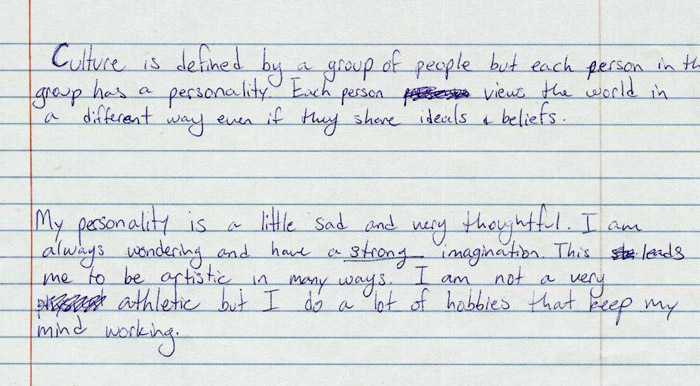 Culture is defined by a group of people but each person in th
group has a personality. Each person views the world in
a different way even if they share ideals & beliefs.
My personality is a little sad and very thoughtful. I am
always wondering and have a strong imagination. This leads
me to be artistic in many ways. I am not a very
athletic but I do a lot of hobbies that keep my
mind working.